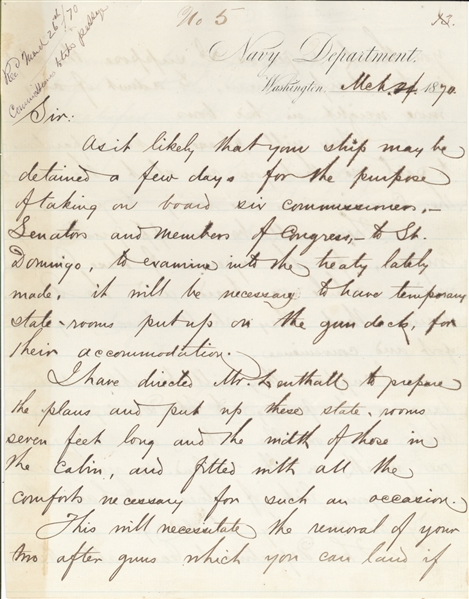 No 5
x2.
Rec'd March 26th/70
Commissioners to
Navy Department.
Washington, Mch 24 1870.
Sir:
As it likely that your ship may be
detained a few days for the purpose
of taking on board six commissioners,–
Senators and members of Congress,– to St.
Domingo, to examine into the treaty lately
made, it will be necessary to have temporary
state-rooms put up on the gun deck, for
their accommodation.
I have directed Mr. Lenthall to prepare
the plans and put up these state-rooms
seven feet long and the width of those in
the cabin, and fitted with all the
comforts necessary for such an occasion.
This will necessitate the removal of your
two after guns which you can land if